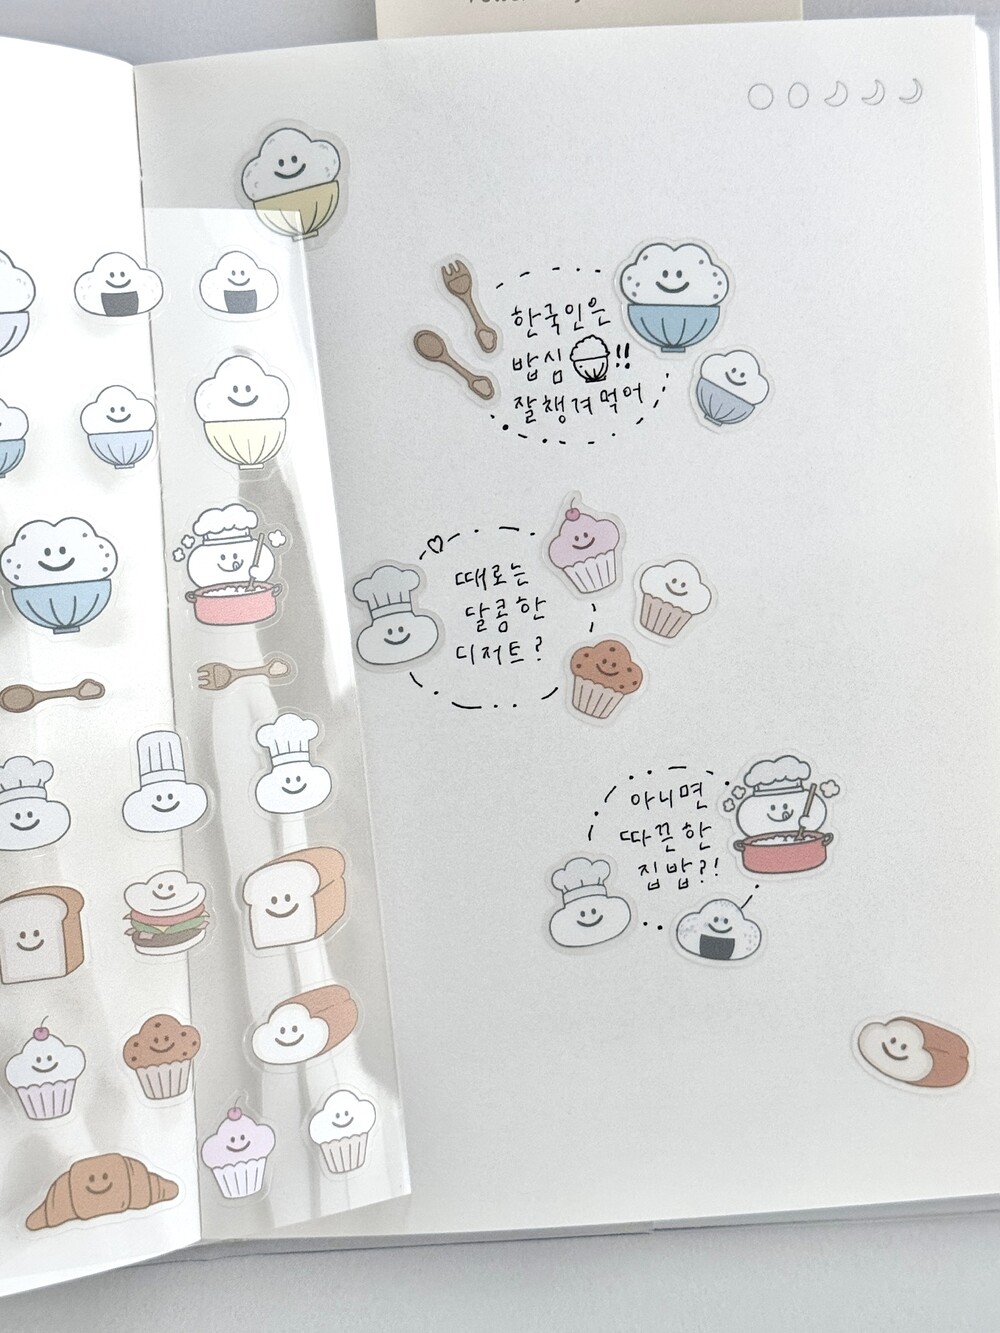 한국인은
밥심!!
잘챙겨먹어
때로는
달콤한
디저트?
아니면
따끈한
집밥?!